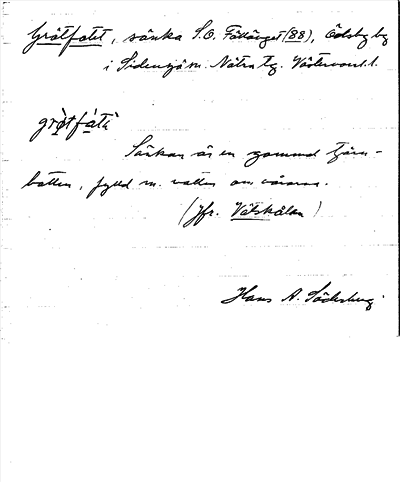 Grötfatet, sänka S.O. Fäbänget (88), Ödsby by
i Sidensjö sn. Nätra tg. Västernorrl. l.
grò̀tfátə̀
Sänkan är en gammal tjärn-
botten, fylld m. vatten om våren.
(Jfr. Vätskålan)
Hans A. Söderberg.